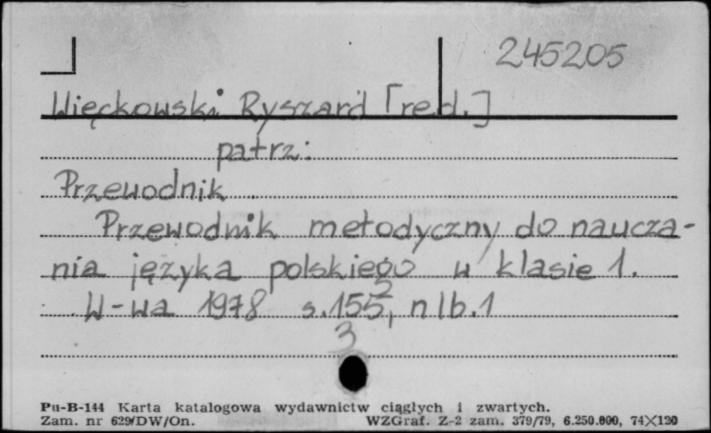 245205
Więckowski Ryszard [red.]
patrz:
Przewodnik
Przewodnik metodyczny do naucza-
nia języka polskiego w klasie 1.
W-wa 1978 s.155, nlb.1
3
Pu-B-144 Karta katalogowa wydawnictw ciągłych i zwartych.
Zam. nr 629/DW/On. WZGraf. Z-2 zam. 379/79, 6.250.000, 74×120